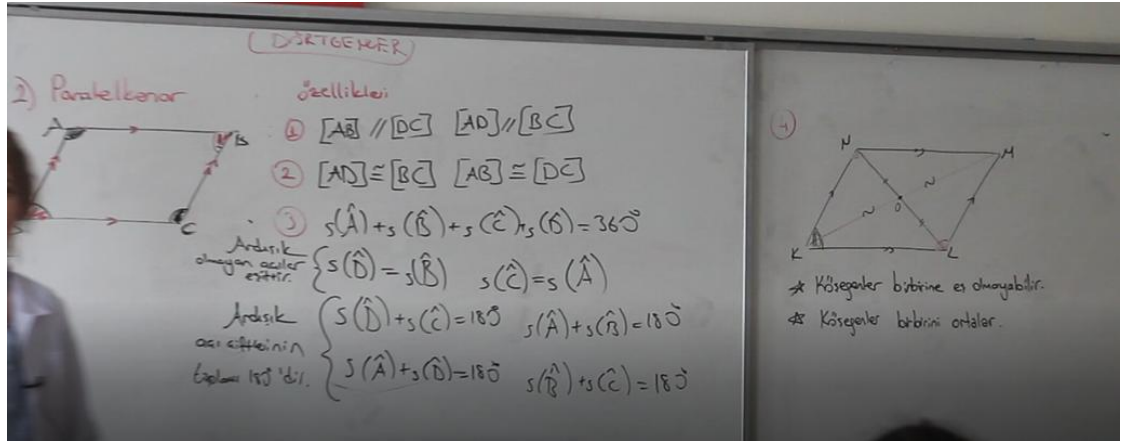 (DÖRTGENLER)
2) Paralelkenar
Özellikleri
A B C
① [AB] // [DC] [AD] // [BC]
② [AD] ≅ [BC] [AB] ≅ [DC]
③ s(Â) + s(B̂) + s(Ĉ) + s(D̂) = 360°
Ardışık olmayan açılar eşittir. { s(D̂) = s(B̂) s(Ĉ) = s(Â)
Ardışık açı çiftlerinin toplamı 180°'dir. { s(D̂) + s(Ĉ) = 180° s(Â) + s(B̂) = 180°
s(Â) + s(D̂) = 180° s(B̂) + s(Ĉ) = 180°
④
N M
O
K L
☆ Köşegenler birbirine eş olmayabilir.
☆ Köşegenler birbirini ortalar.